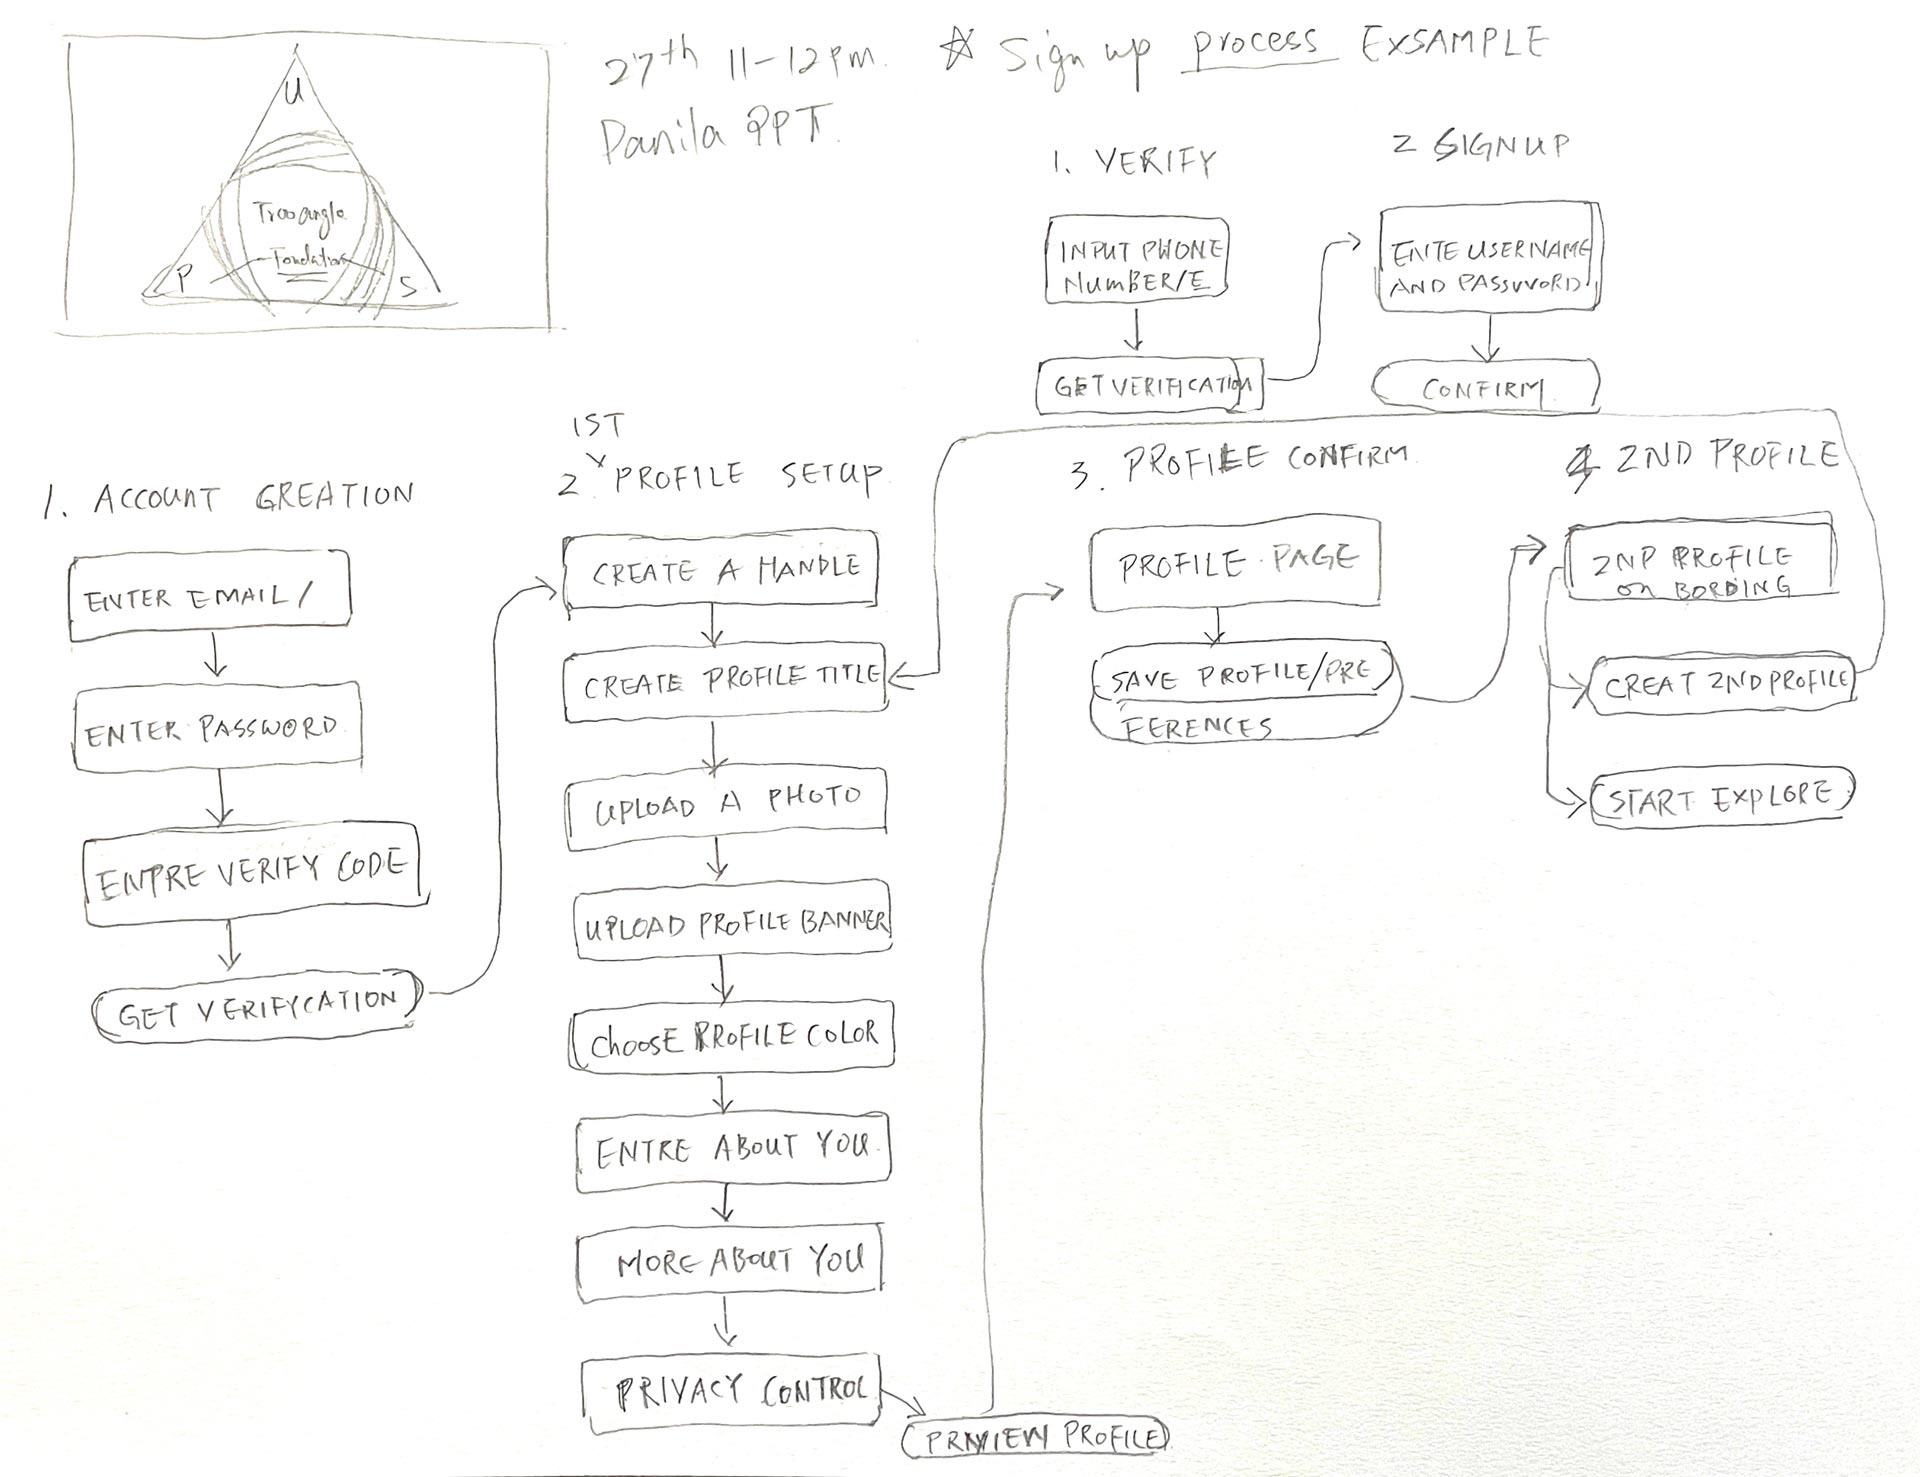 U
P
S
27th 11-12pm.
Danila PPT.
☆ Sign up process EXSAMPLE
1. VERIFY
INPUT PHONE
NUMBER/E
GET VERIFICATION
2 SIGNUP
ENTE USERNAME
AND PASSWORD
CONFIRM
1. ACCOUNT CREATION
ENTER EMAIL/
ENTER PASSWORD
ENTRE VERIFY CODE
GET VERIFYCATION
1ST
2 PROFILE SETUP
CREATE A HANDLE
CREATE PROFILE TITLE
UPLOAD A PHOTO
UPLOAD PROFILE BANNER
CHOOSE PROFILE COLOR
ENTRE ABOUT YOU
MORE ABOUT YOU
PRIVACY CONTROL
PROFILE
3. PROFILE CONFIRM
PROFILE PAGE
SAVE PROFILE/PRE
FERENCES
4 2ND PROFILE
2ND PROFILE
ON BORDING
CREAT 2ND PROFILE
START EXPLORE